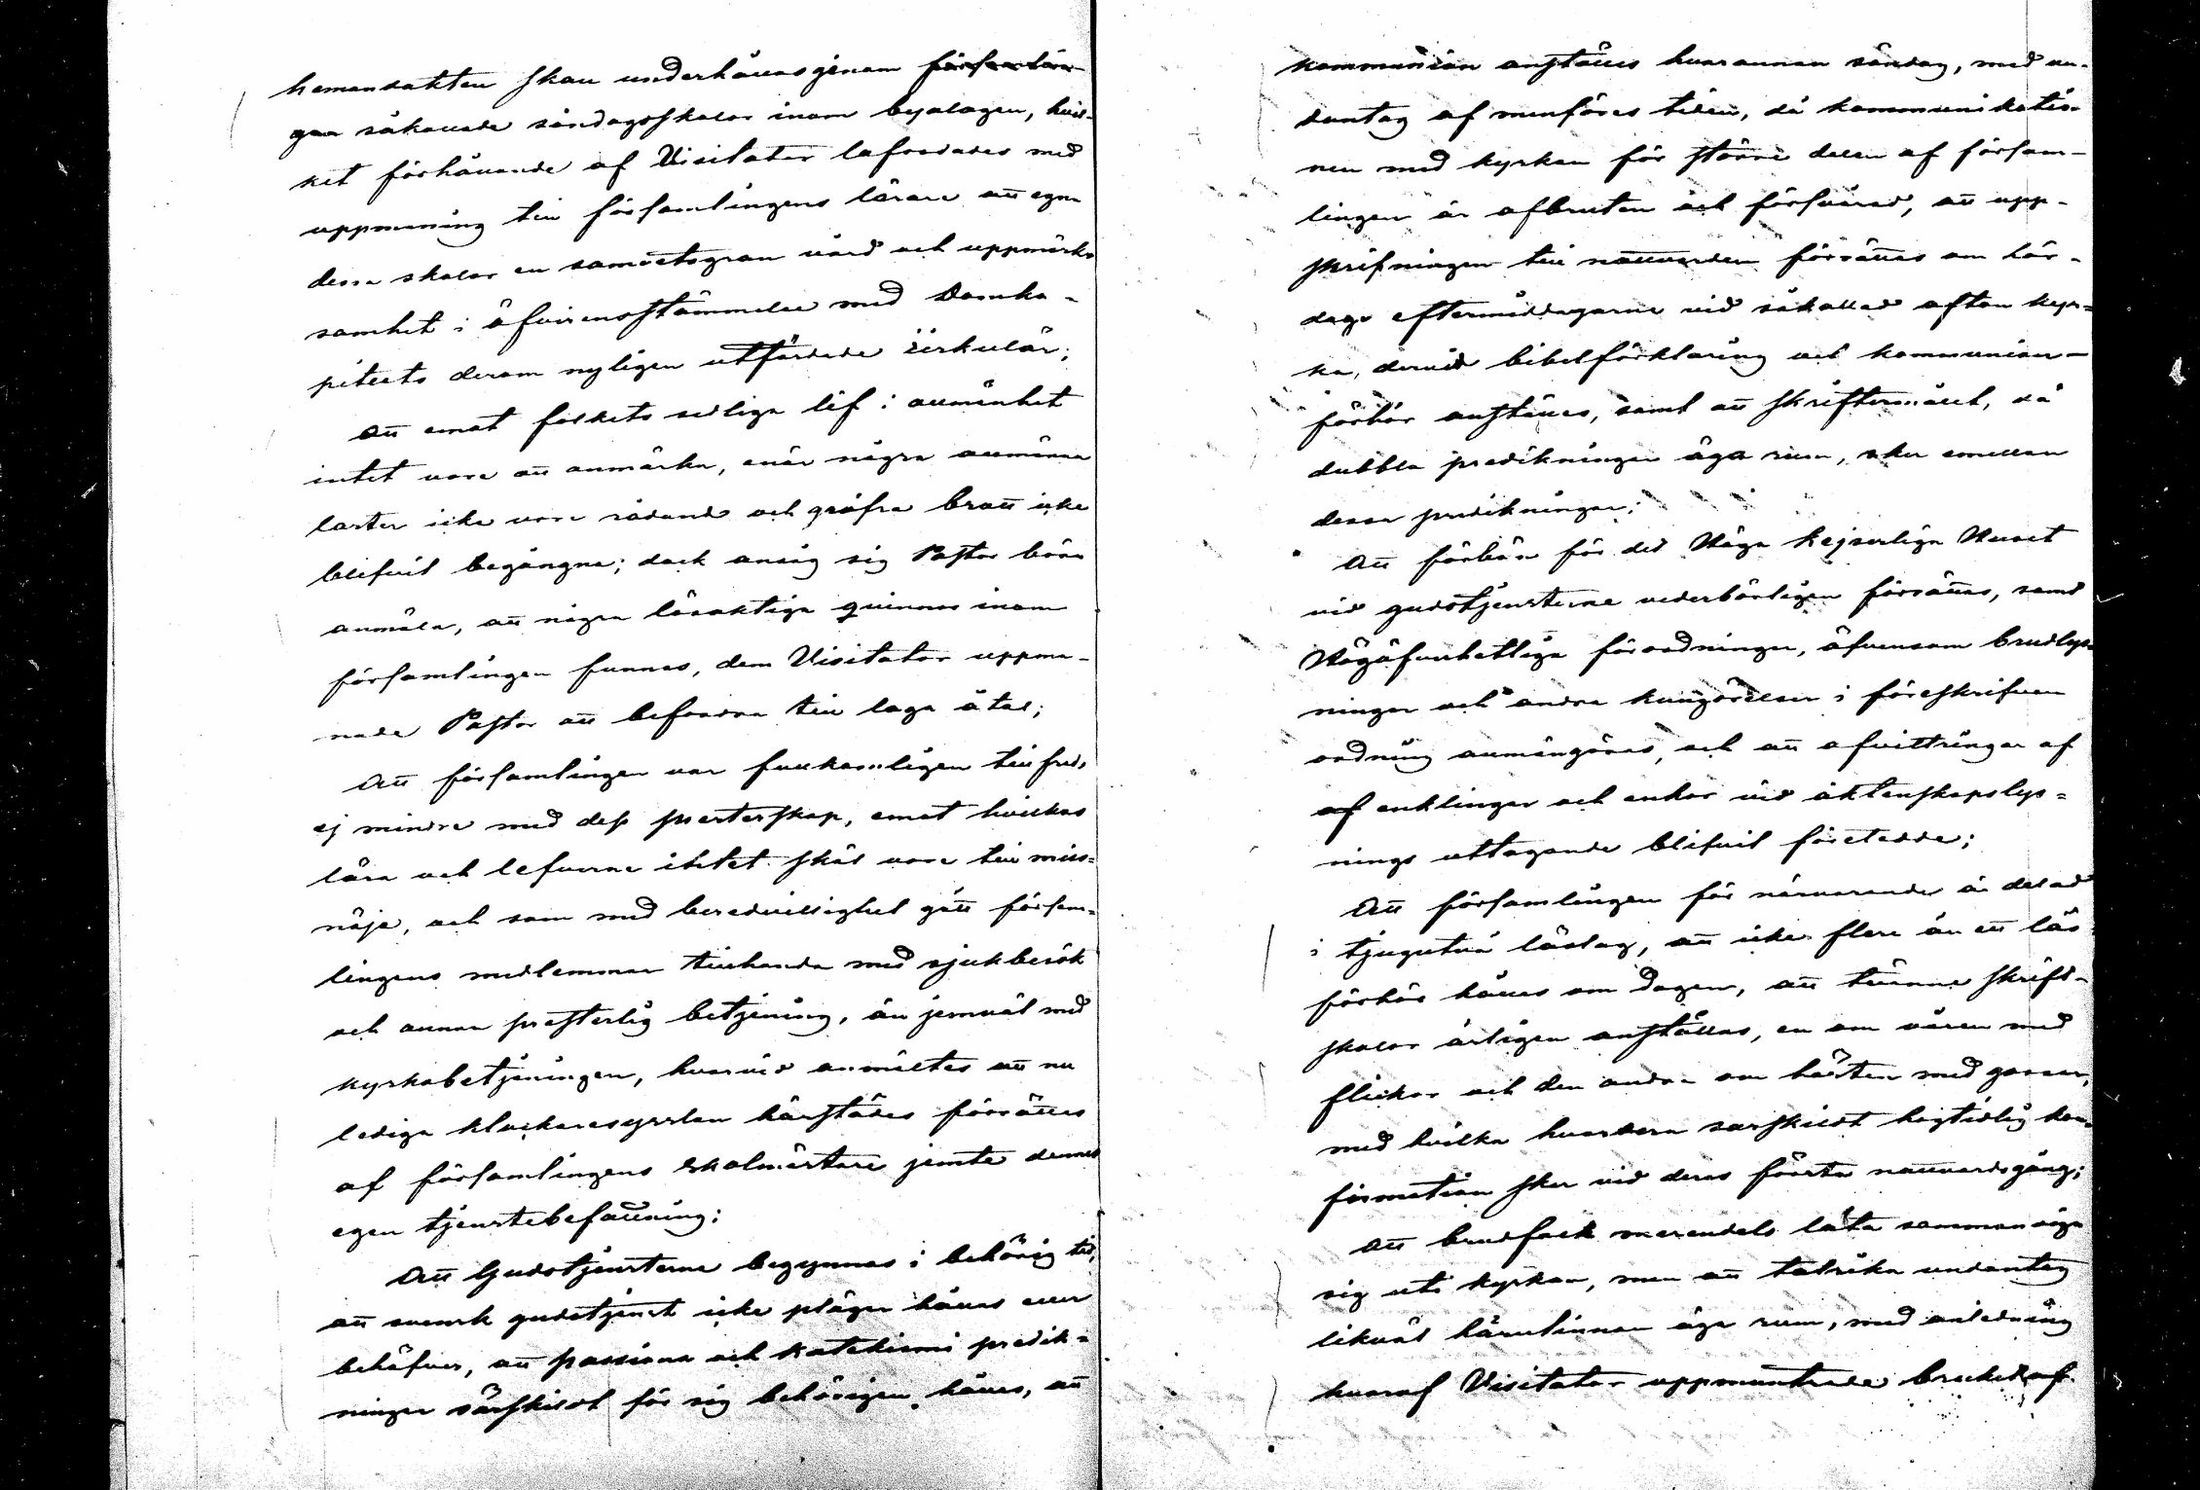 hemandakten skall underhållas genom församlin-
gen såkallade söndagsskolor inom byalagen, hvil-
ket förhållande af Visitator lafordades med
uppmaning till församlingens lärare att egna
dessa skolor en samvetsgran vård och uppmärk-
samhet i öfverensstämmelse med Domka-
pitlets derom nyligen utfärdade cirkulär;
Att emot folkets sedliga lif i allmänhet
intet vore att anmärka, enär några allmänna
laster icke vore rådande och gröfre brott icke
blifvit begångna; dock ansåg sig Pastor böra
anmäla, att några lösaktiga qvinnor inom
församlingen funnes, dem Visitator uppma-
nade Pastor att befordra till laga åtal;
Att församlingen var fullkomligen tillfreds
ej mindre med dess presterskap, emot hvilkas
lära och lefverne intet skäl vore till miss-
nöje, och som med beredvillighet gått försam-
lingens medlemmar tillhanda med sjukbesök
och annan presterlig betjening, än jemväl med
kyrkobetjeningen, hvarvid anmältes att nu
lediga klockaresysslan härstädes förrättas
af församlingens skolmästare jemte dennes
egen tjenstebefattning;
Att Gudstjensterna begynnas i behörig tid,
att svensk gudstjenst icke pläger hållas eller
behöfves, att passions och katekismi predik-
ningar särskildt för sig behörigen hållas, att
kommunion anställes hvarannan söndag, med un-
dantag af menföres tiden, då kommunikatio-
nen med kyrkan för större delen af försam-
lingen är afbruten och försvårad, att upp-
skrifningen till nattvarden förrättas om lör-
dags eftermiddagarne vid såkallad afton kyr-
ka, dervid bibelförklaring och kommunion-
förhör anställes, samt att skriftermålet, då
dubbla predikningar äga rum, sker emellan
dessa predikningar;
Att förbön för det Höga Kejserliga Huset
vid gudstjensterna vederbörligen förrättas, samt
Högöfverhetliga förordningar, äfvensom brudlys-
ningar och andra kungörelser i föreskrifven
ordning allmängöras, och att afvittringar af
af enklingar och enkor vid äktenskapslys-
nings uttagande blifvit företedde;
Att församlingen för närvarande är delad
i tjugutvå läslag, att icke flere än ett läs-
förhör hålles om dagen, att tvänne skrift-
skolor årligen anställas, en om våren med
flickor och den andra om hösten med gossar,
med hvilka hvardera särskildt högtidlig kon-
firmation sker vid deras första nattvardsgång;
Att brudfolk merendels låta sammanviga
sig uti kyrkan, men att talrika undantag
likväl härutinnan äga rum, med anledning
hvaraf Visitator uppmuntrade bruket af